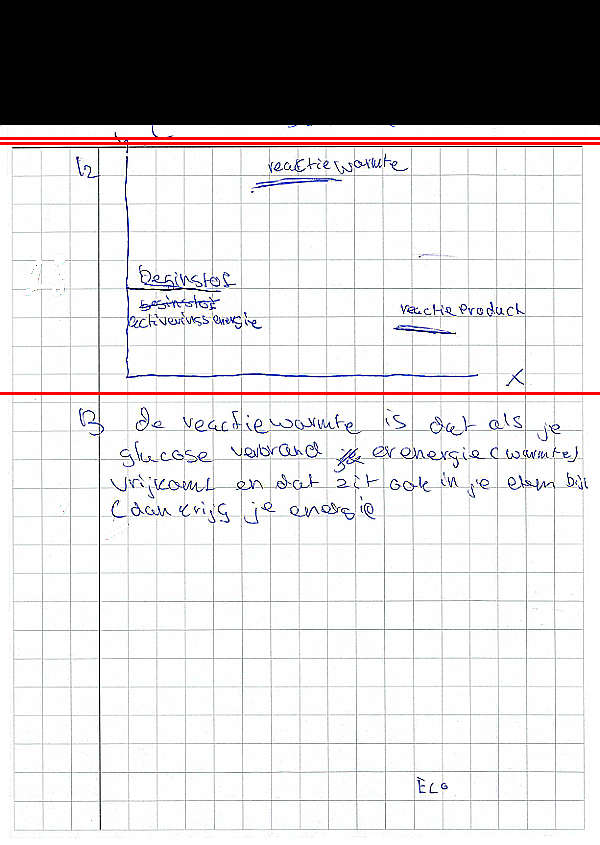 12
reactiewarmte
beginstof
beginstof
activerings energie
reactie Product
X
13 de reactiewarmte is dat als je
glucose verbrand er energie (warmte)
vrijkomt en dat zit ook in je eten bij
(dan krijg je energie